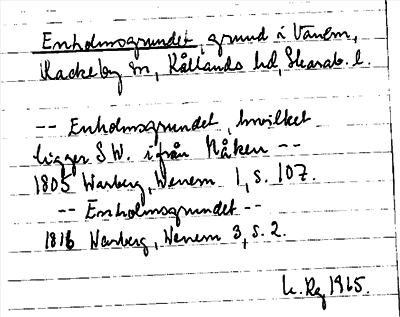 Enholmsgrundet, grund i Vänern,
Rackeby sn, Kållands hd, Skarab. l.
-- Enholmsgrundet, hwilket
ligger S W. ifrån Nåken --
1805 Warberg, Wenern 1, s. 107.
-- Enholmsgrundet --
1816 Warberg, Wenern 3, s. 2.
1965.